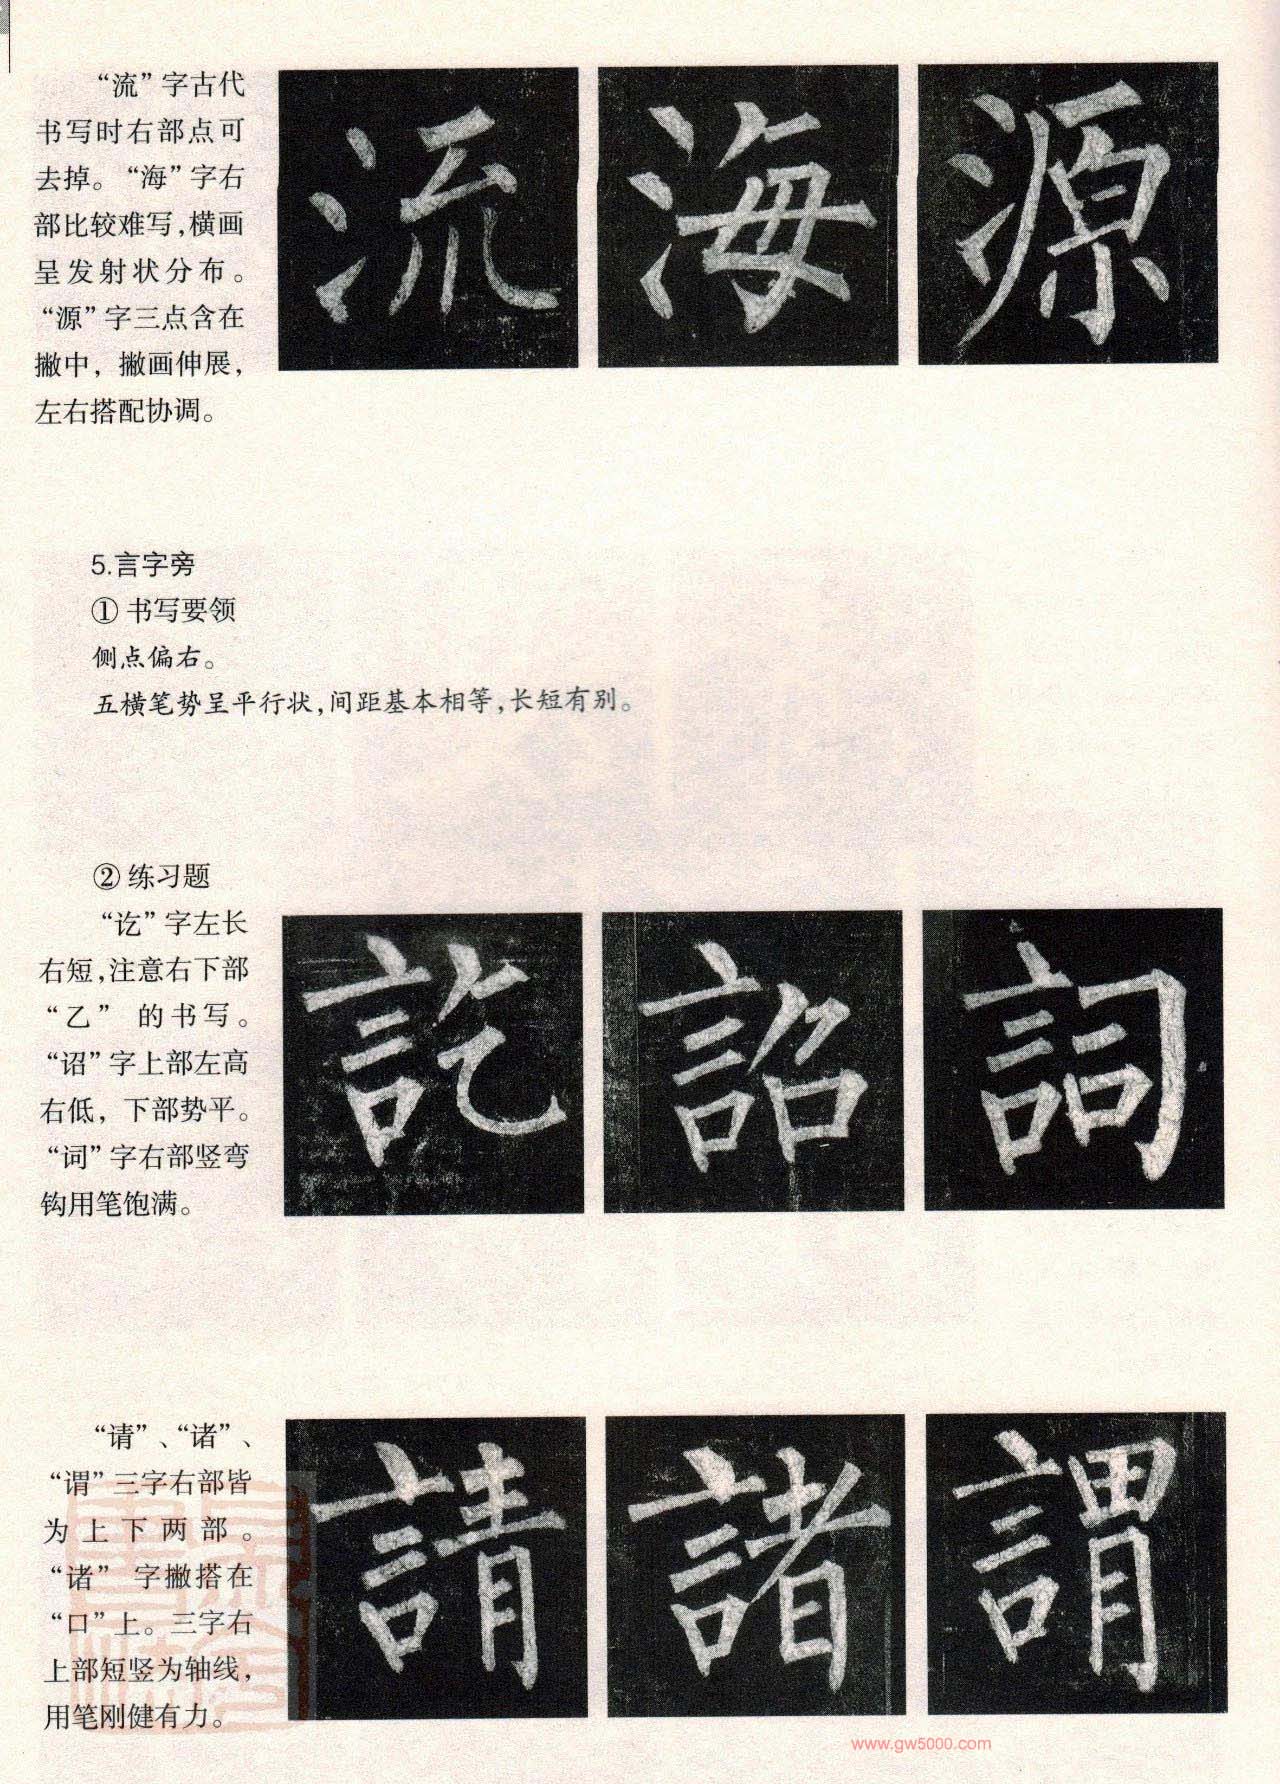 “流”字古代
书写时右部点可
去掉。“海”字右
部比较难写,横画
呈发射状分布。
“源”字三点含在
撇中，撇画伸展，
左右搭配协调。
流 海 源
5.言字旁
① 书写要领
侧点偏右。
五横笔势呈平行状,间距基本相等,长短有别。
② 练习题
“讫”字左长
右短,注意右下部
“乙” 的书写。
“诏”字上部左高
右低，下部势平。
“词”字右部竖弯
钩用笔饱满。
訖 詔 詞
“请”、“诸”、
“谓”三字右部皆
为上下两部。
“诸” 字撇搭在
“口”上。三字右
上部短竖为轴线，
用笔刚健有力。
請 諸 謂
www.gw5000.com